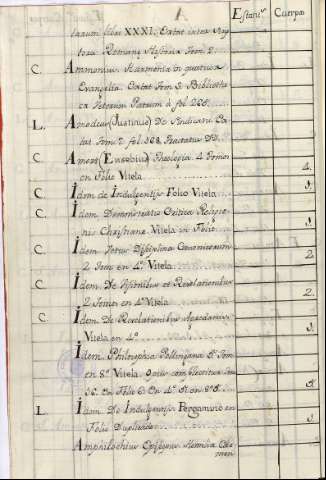 A
Estanᵗᵉ Cuerpoˢ
rarum libri XXXI. Extat inter Scriptores
Romanę Historię Tom. 2.
C. Ammonius Harmonia in quatuor
Evangelia Extat Tom. 3. Bibliotheca
Veterum Patrum à fol. 226.
L. Amodeus (Justinus) De Sindicatu
fol. 168. Tractatus DD.
C. Amort (Eusebius) Theologia 4. Tomos
en Folio Vitela 4.
C. Idem de Indulgentiis Folio Vitela 1.
C. Idem Demonstratio Critica Religionis
Christianę Vitela in Folio 1.
C. Idem Vetus Disciplina Canonicorum
2. Tom. en 4º Vitela 2
C. Idem De Visionibus et Revelationibus
2. Tomos en 4º Vitela 2.
C. Idem De Revelationibus Agredanis
Vitela en 4º 1.
Idem Philosophia Pollingana
en 8º Vitela
en Folio en 4º
L. Idem De Indulgentiis Pergamino en
Folio Duplicado 1.
Amphilochius Episcopus